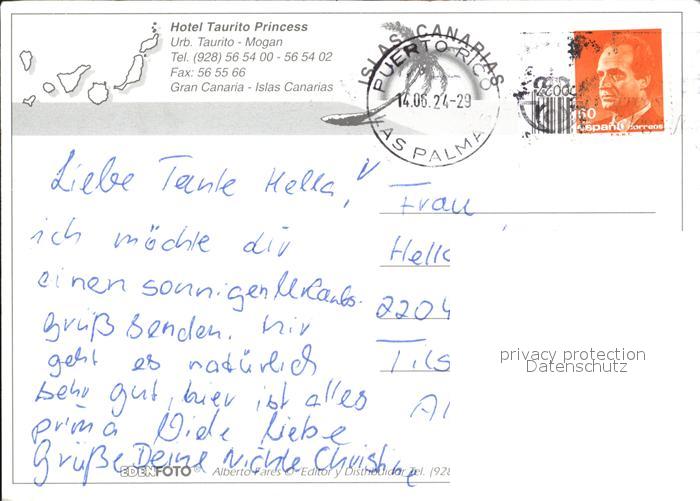 Hotel Taurito Princess
Urb. Taurito - Mogan
Tel. (928) 56 54 00 - 56 54 02
Fax: 56 55 66
Gran Canaria - Islas Canarias
ISLAS CANARIAS
PUERTO RICO
14.06.24-29
LAS PALMAS
España correos
Liebe Tante Hella,
ich möchte dir
einen sonnigen Urlaubs-
gruß senden. Mir
geht es natürlich
sehr gut, hier ist alles
prima Viele liebe
Grüße Deine Nichte Christine
Frau
Hell
2204
Tils
privacy protection
Datenschutz
EDENFOTO® Alberto Fares © - Editor y Distribuidor Tel. (928